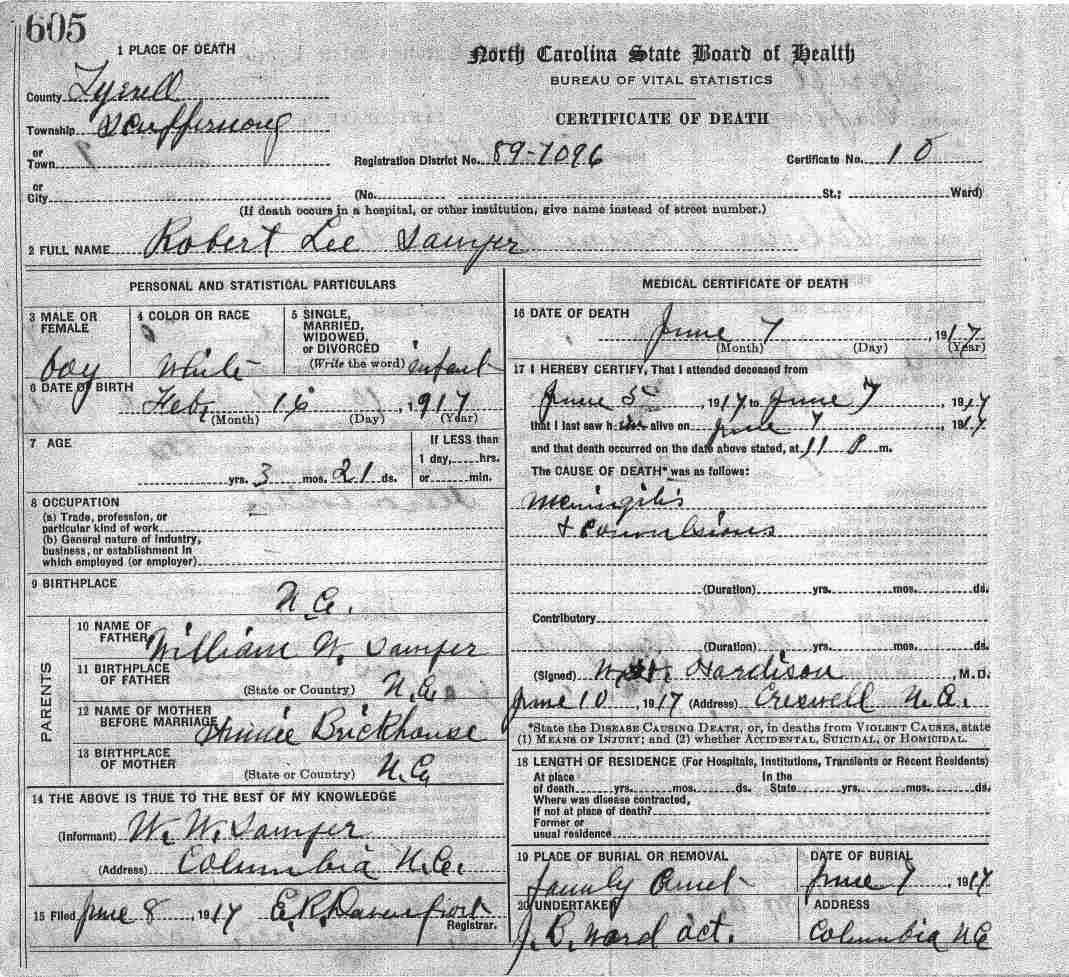 605
1 PLACE OF DEATH
North Carolina State Board of Health
BUREAU OF VITAL STATISTICS
CERTIFICATE OF DEATH
County Tyrrell
Township Scuppernong
or Town
Registration District No. 89-7096 Certificate No. 10
or City (No. St.; Ward)
(If death occurs in a hospital, or other institution, give name instead of street number.)
2 FULL NAME Robert Lee Sawyer
PERSONAL AND STATISTICAL PARTICULARS
3 MALE OR FEMALE boy
4 COLOR OR RACE White
5 SINGLE, MARRIED, WIDOWED, or DIVORCED (Write the word) infant
6 DATE OF BIRTH Feb, 16, 1917
(Month) (Day) (Year)
7 AGE
yrs. 3 mos. 21 ds.
If LESS than 1 day, hrs. or min.
8 OCCUPATION
(a) Trade, profession, or particular kind of work
(b) General nature of industry, business, or establishment in which employed (or employer)
9 BIRTHPLACE
N.C.
PARENTS
10 NAME OF FATHER William W. Sawyer
11 BIRTHPLACE OF FATHER (State or Country) N.C.
12 NAME OF MOTHER BEFORE MARRIAGE Brickhouse
13 BIRTHPLACE OF MOTHER (State or Country) N.C.
14 THE ABOVE IS TRUE TO THE BEST OF MY KNOWLEDGE
(Informant) W. W. Sawyer
(Address) Columbia N.C.
15 Filed June 8, 1917 E.R. Davenport
Registrar.
MEDICAL CERTIFICATE OF DEATH
16 DATE OF DEATH
June 7, 1917
(Month) (Day) (Year)
17 I HEREBY CERTIFY, That I attended deceased from
June 5, 1917 to June 7, 1917
that I last saw him alive on June 7, 1917
and that death occurred on the date above stated, at 11 P m.
The CAUSE OF DEATH* was as follows:
Meningitis
+ convulsions
(Duration) yrs. mos. ds.
Contributory
(Duration) yrs. mos. ds.
(Signed) Hardison, M.D.
June 10, 1917 (Address) Creswell N.C.
*State the DISEASE CAUSING DEATH, or, in deaths from VIOLENT CAUSES, state
(1) MEANS OF INJURY; and (2) whether ACCIDENTAL, SUICIDAL, or HOMICIDAL.
18 LENGTH OF RESIDENCE (For Hospitals, Institutions, Transients or Recent Residents)
At place of death yrs. mos. ds. In the State yrs. mos. ds.
Where was disease contracted,
If not at place of death?
Former or usual residence
19 PLACE OF BURIAL OR REMOVAL
Family Cemet
DATE OF BURIAL
June 7, 1917
20 UNDERTAKER
J. B. Ward act.
ADDRESS
Columbia NC